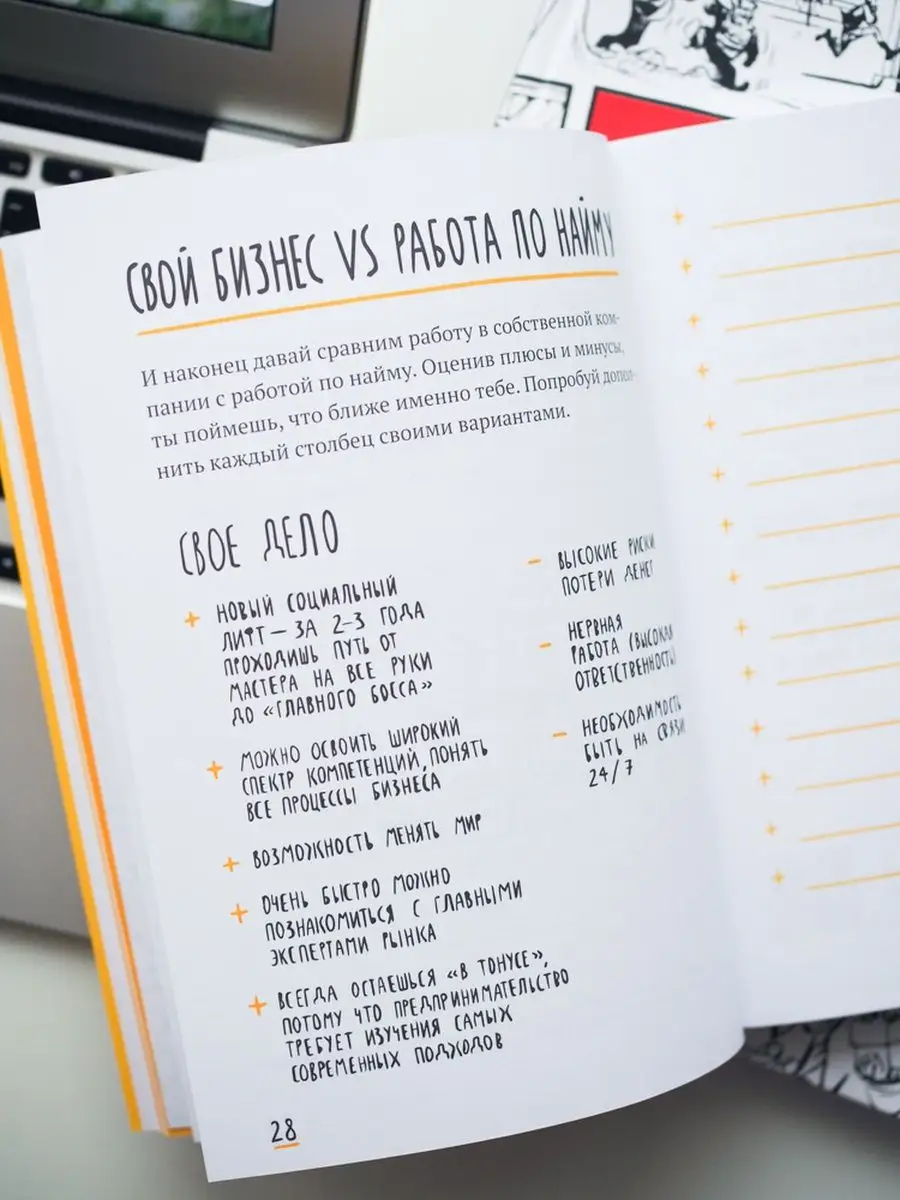 СВОЙ БИЗНЕС VS РАБОТА ПО НАЙМУ
И наконец давай сравним работу в собственной ком-
пании с работой по найму. Оценив плюсы и минусы,
ты поймешь, что ближе именно тебе. Попробуй допол-
нить каждый столбец своими вариантами.
СВОЕ ДЕЛО
+ НОВЫЙ СОЦИАЛЬНЫЙ
ЛИФТ — ЗА 2–3 ГОДА
ПРОХОДИШЬ ПУТЬ ОТ
МАСТЕРА НА ВСЕ РУКИ
ДО «ГЛАВНОГО БОССА»
+ МОЖНО ОСВОИТЬ ШИРОКИЙ
СПЕКТР КОМПЕТЕНЦИЙ, ПОНЯТЬ
ВСЕ ПРОЦЕССЫ БИЗНЕСА
+ ВОЗМОЖНОСТЬ МЕНЯТЬ МИР
+ ОЧЕНЬ БЫСТРО МОЖНО
ПОЗНАКОМИТЬСЯ С ГЛАВНЫМИ
ЭКСПЕРТАМИ РЫНКА
+ ВСЕГДА ОСТАЕШЬСЯ «В ТОНУСЕ»,
ПОТОМУ ЧТО ПРЕДПРИНИМАТЕЛЬСТВО
ТРЕБУЕТ ИЗУЧЕНИЯ САМЫХ
СОВРЕМЕННЫХ ПОДХОДОВ
– ВЫСОКИЕ РИСКИ
ПОТЕРИ ДЕНЕГ
– НЕРВНАЯ
РАБОТА (ВЫСОКАЯ
ОТВЕТСТВЕННОСТЬ)
– НЕОБХОДИМОСТЬ
БЫТЬ НА СВЯЗИ
24/7
28